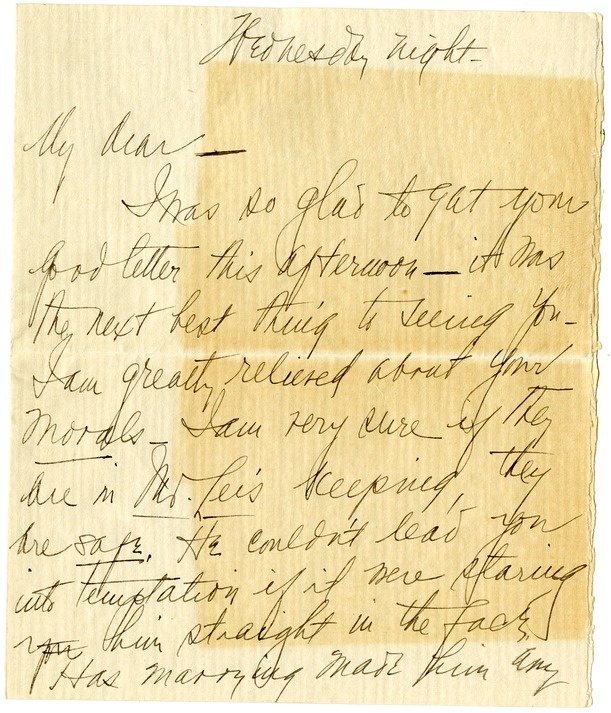 Wednesday night-
My dear —
I was so glad to get your
good letter this afternoon — it was
the next best thing to seeing you-
I am greatly relieved about your
morals- I am very sure if they
are in Mr. Lei's keeping, they
are safe. He couldn't lead you
into temptation if it were staring
you him straight in the face,
Has marrying made him any